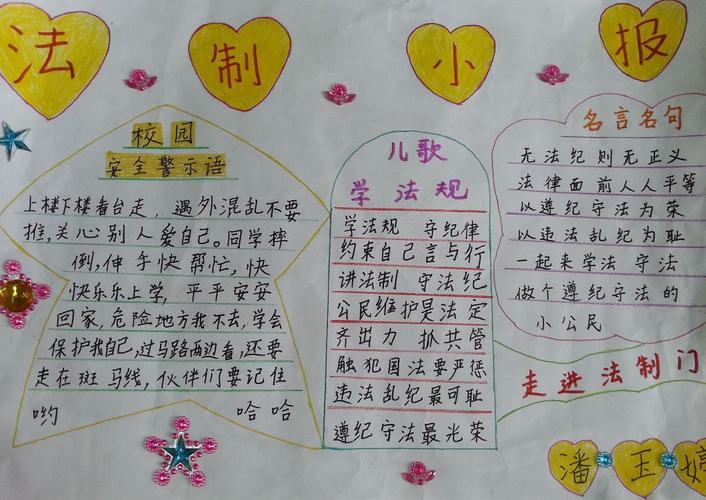 法制小报
校园
安全警示语
上楼下楼看台走,遇外混乱不要
推,关心别人爱自己。同学摔
倒,伸手快帮忙,快
快乐乐上学,平平安安
回家,危险地方我不去,学会
保护我自己,过马路两边看,还要
走在斑马线,伙伴们要记住
哟 哈哈
儿歌
学法规
学法规 守纪律
约束自己言与行
讲法制 守法纪
公民维护是法定
齐出力 抓共管
触犯国法要严惩
违法乱纪最可耻
遵纪守法最光荣
名言名句
无法纪则无正义
法律面前人人平等
以遵纪守法为荣
以违法乱纪为耻
一起来学法 守法
做个遵纪守法的
小公民
走进法制门
潘玉婷